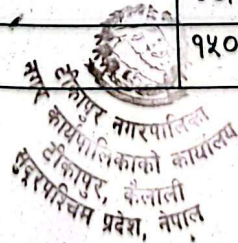 १५०
टीकापुर नगरपालिका
नगर कार्यपालिकाको कार्यालय
टीकापुर, कैलाली
सुदूरपश्चिम प्रदेश, नेपाल